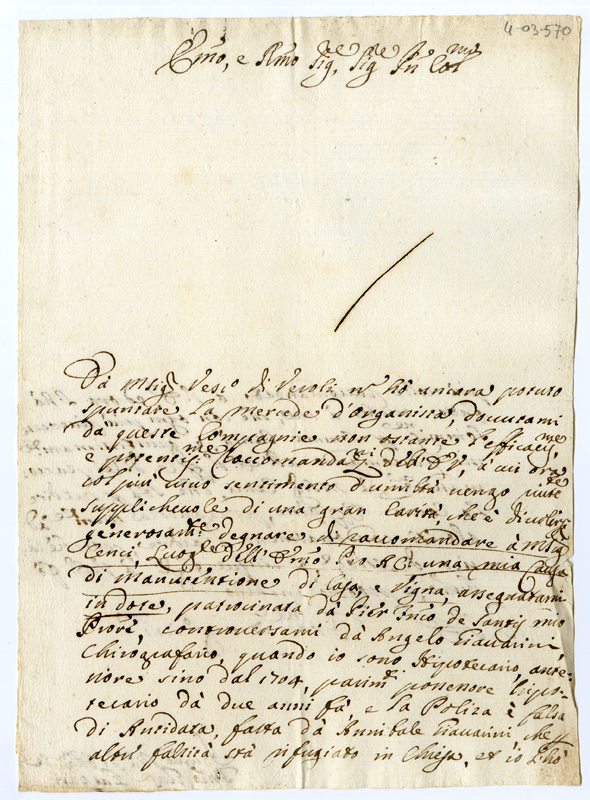 4-03-570
Emo, e Rmo Sigre, Sigre Pn Colmo
Dà Msigr Vesco di Veroli nō hò ancora potuto
spuntare la mercede d'Organista, dovutami
dà queste Compagnie non ostante l'efficacme
e potentisme raccomandazni dell' E.V., à cui ora
col più vivo sentimento d'umiltà vengo
supplichevole di una gran Carità, che è di
generosamte degnare di raccomandare à Msigr
Cenci, Luogte dell' Emo Pro A.C. una mia Causa
di manutenzione di Casa, e Vigna, assegnatami
in dote, patrocinata dà Pier Fnco de Santis mio
Prore, controversami dà Angelo Giavarini
Chirografario, quando io sono Ipotecario, ante-
riore sino dal 1704, parimti possessore Ipo-
tecario dà due anni fà e la Poliza è falsa
di Antidata, fatta dà Annibale Giavarini che p
altri falsità stà rifugiato in Chiesa, et io l'hò